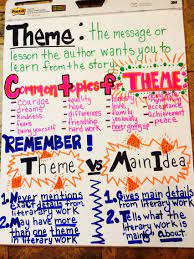 Post-it
Theme: the message or
lesson the author wants you to
learn from the story.
Common topics for THEME:
-courage
-dreams
-kindness
-fears
-being yourself
-equality
-hope
-differences
-friendship
-hard work
-honesty
-love
-family
-acceptance
-peace
REMEMBER!
Theme vs Main Idea
1. Never mentions
exact details from
literary work
2. May have more
than one theme
in literary work
1. Gives main details
from literary work
2. Tells what the
literary work is
mainly about.